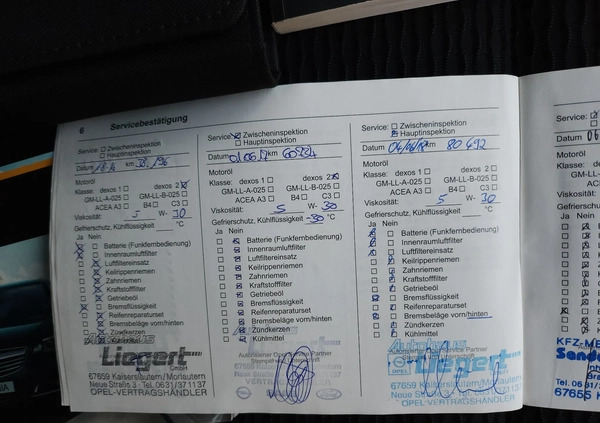 6 Servicebestätigung
Service: Zwischeninspektion
Hauptinspektion
Datum km
Motoröl
Klasse: dexos 1 dexos 2
GM-LL-A-025 GM-LL-B-025
ACEA A3 B4 C3
Viskosität: 5 W- 30
Gefrierschutz, Kühlflüssigkeit °C
Ja Nein
Batterie (Funkfernbedienung)
Innenraumluftfilter
Luftfiltereinsatz
Keilrippenriemen
Zahnriemen
Kraftstofffilter
Getriebeöl
Bremsflüssigkeit
Reifenreparaturset
Bremsbeläge vorn/hinten
Zündkerzen
Kühlmittel
Liegert
GmbH
67659 Kaiserslautern/Morlautern
Neue Straße 3 · Tel. 0631/37 11 37
OPEL-VERTRAGSHÄNDLER
Service: Zwischeninspektion
Hauptinspektion
Datum km
Motoröl
Klasse: dexos 1 dexos 2
GM-LL-A-025 GM-LL-B-025
ACEA A3 B4 C3
Viskosität: 5 W- 30
Gefrierschutz, Kühlflüssigkeit -30 °C
Ja Nein
Batterie (Funkfernbedienung)
Innenraumluftfilter
Luftfiltereinsatz
Keilrippenriemen
Zahnriemen
Kraftstofffilter
Getriebeöl
Bremsflüssigkeit
Reifenreparaturset
Bremsbeläge vorn/hinten
Zündkerzen
Kühlmittel
Autorisierter Opel Service Partner
Service: Zwischeninspektion
Hauptinspektion
Datum 04/06/18 km 80 492
Motoröl
Klasse: dexos 1 dexos 2
GM-LL-A-025 GM-LL-B-025
ACEA A3 B4 C3
Viskosität: 5 W- 30
Gefrierschutz, Kühlflüssigkeit °C
Ja Nein
Batterie (Funkfernbedienung)
Innenraumluftfilter
Luftfiltereinsatz
Keilrippenriemen
Zahnriemen
Kraftstofffilter
Getriebeöl
Bremsflüssigkeit
Reifenreparaturset
Bremsbeläge vorn/hinten
Zündkerzen
Kühlmittel
Autohaus
Liegert
67659 Kaiserslautern/Morlautern
Neue Straße 3 · Tel. 0631/37 11 37
OPEL-VERTRAGSHÄNDLER
Service:
Datum
Motoröl
Klasse:
Viskosität:
Gefriersch
Ja Nein
KFZ-ME
Sand
67655 K